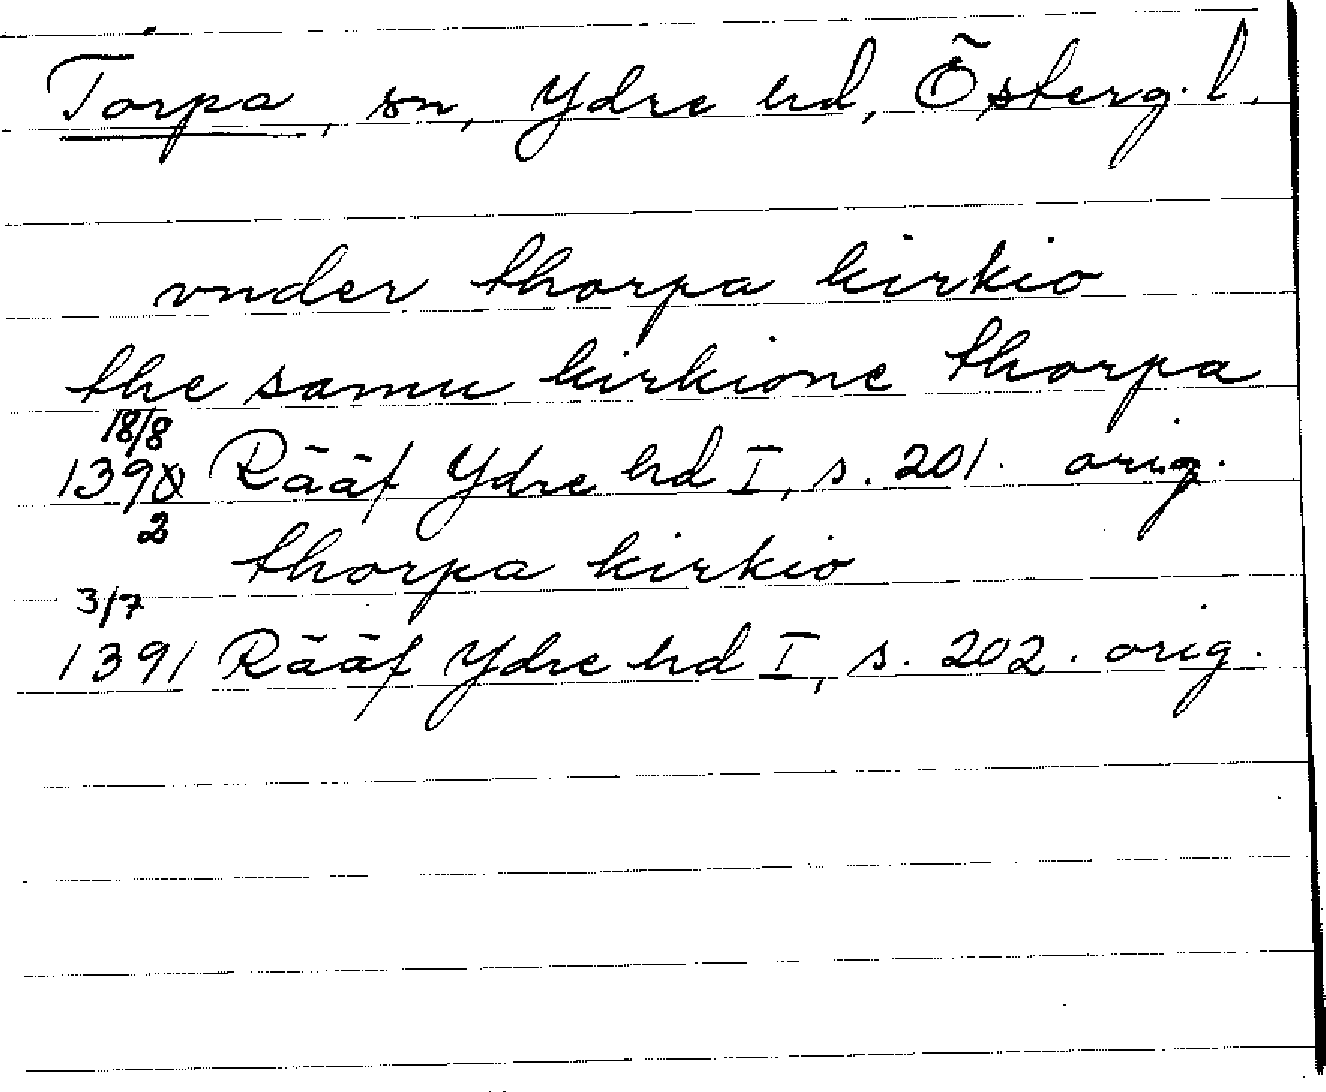 Torpa, sn, Ydre hd, Österg. l.
vnder thorpa kirkio
the samu kirkione thorpa
18/8
1390 Rääf Ydre hd I, s. 201. orig.
2
thorpa kirkio
3/7
1391 Rääf Ydre hd I, s. 202. orig.